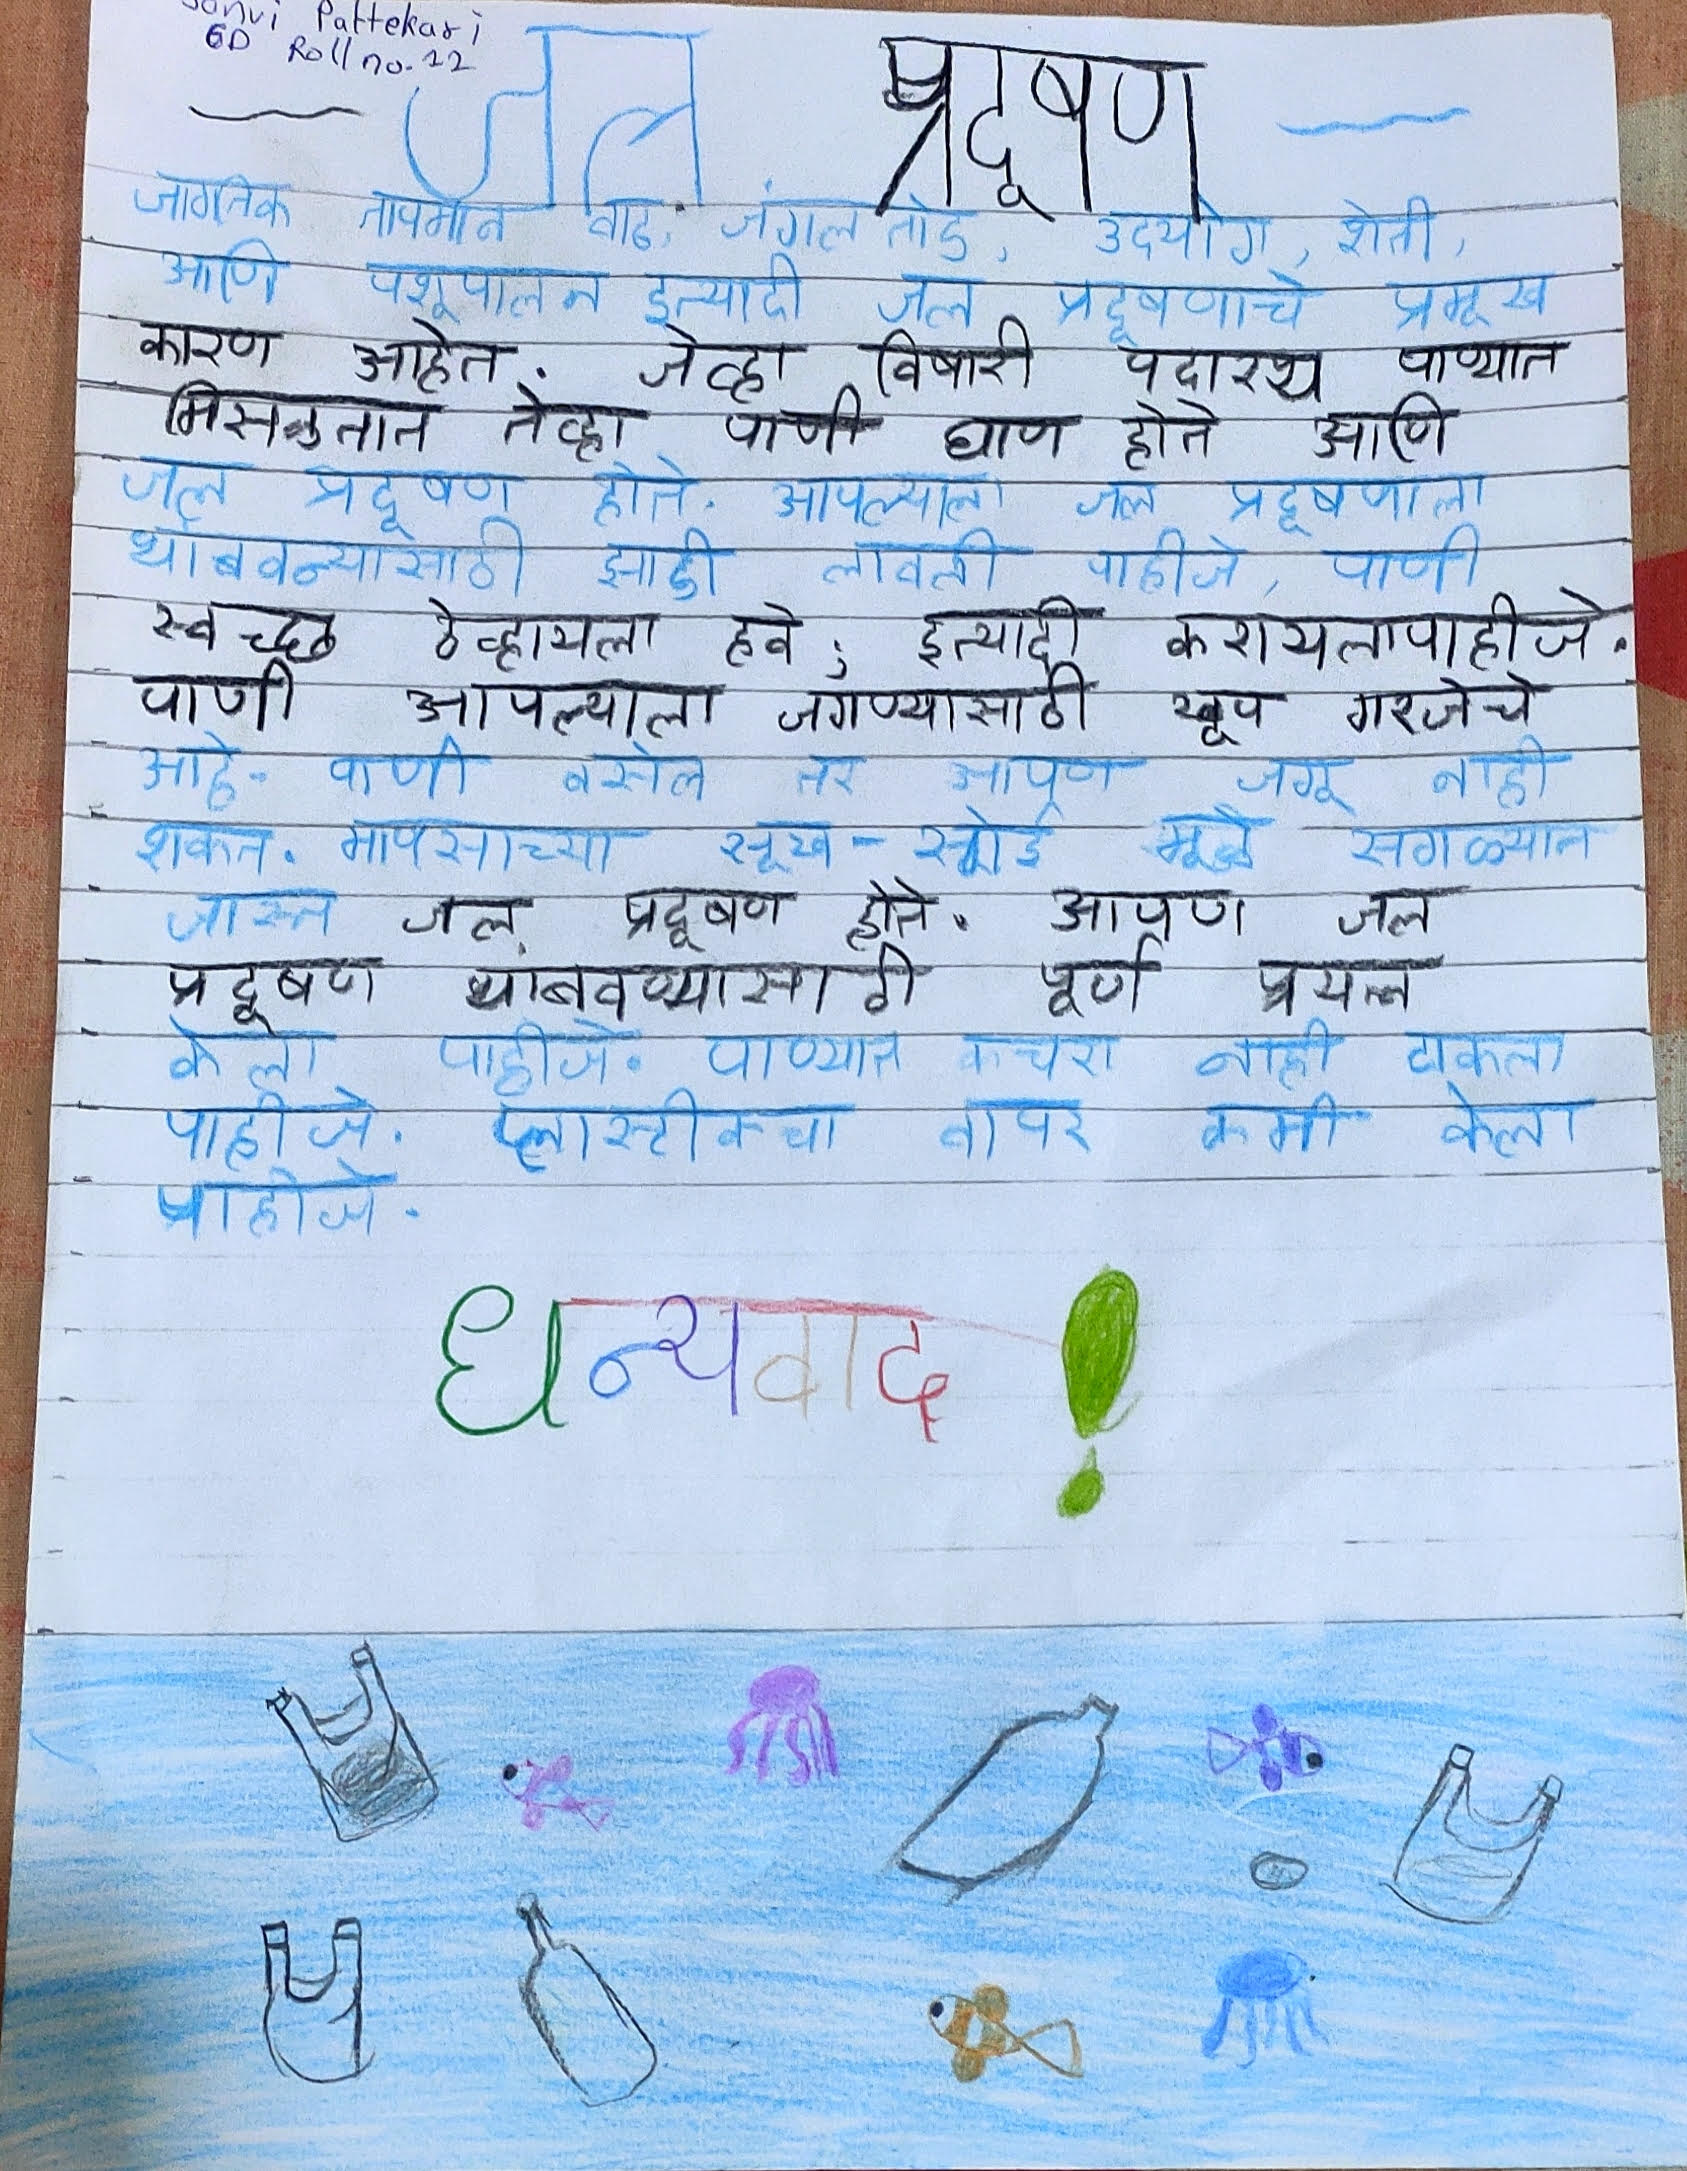 Sanvi Pattekari
6D Roll no. 22
जल प्रदूषण
जागतिक तापमान वाढ, जंगल तोड, उदयोग, शेती,
आणि पशूपालन इत्यादी जल प्रदूषणाचे प्रमूख
कारण आहेत. जेव्हा विषारी पदारथ पाण्यात
मिसळतात तेव्हा पाणी घाण होते आणि
जल प्रदूषण होते. आपल्याला जल प्रदूषणाला
थांबवन्यासाठी झाडी लावली पाहीजे, पाणी
स्वच्छ ठेव्हायला हवे, इत्यादी करायलापाहीजे.
पाणी आपल्याला जगण्यासाठी खूप गरजेचे
आहे. पाणी नसेल तर आपण जगू नाही
शकत. माणसाच्या सूख - सोई मूळे सगळ्यात
जास्त जल प्रदूषण होते. आपण जल
प्रदूषण थांबवण्यासाठी पूर्ण प्रयत्न
केला पाहीजे. पाण्यात कचरा नाही टाकला
पाहीजे. प्लास्टीकचा वापर कमी केला
पाहीजे.
धन्यवाद !